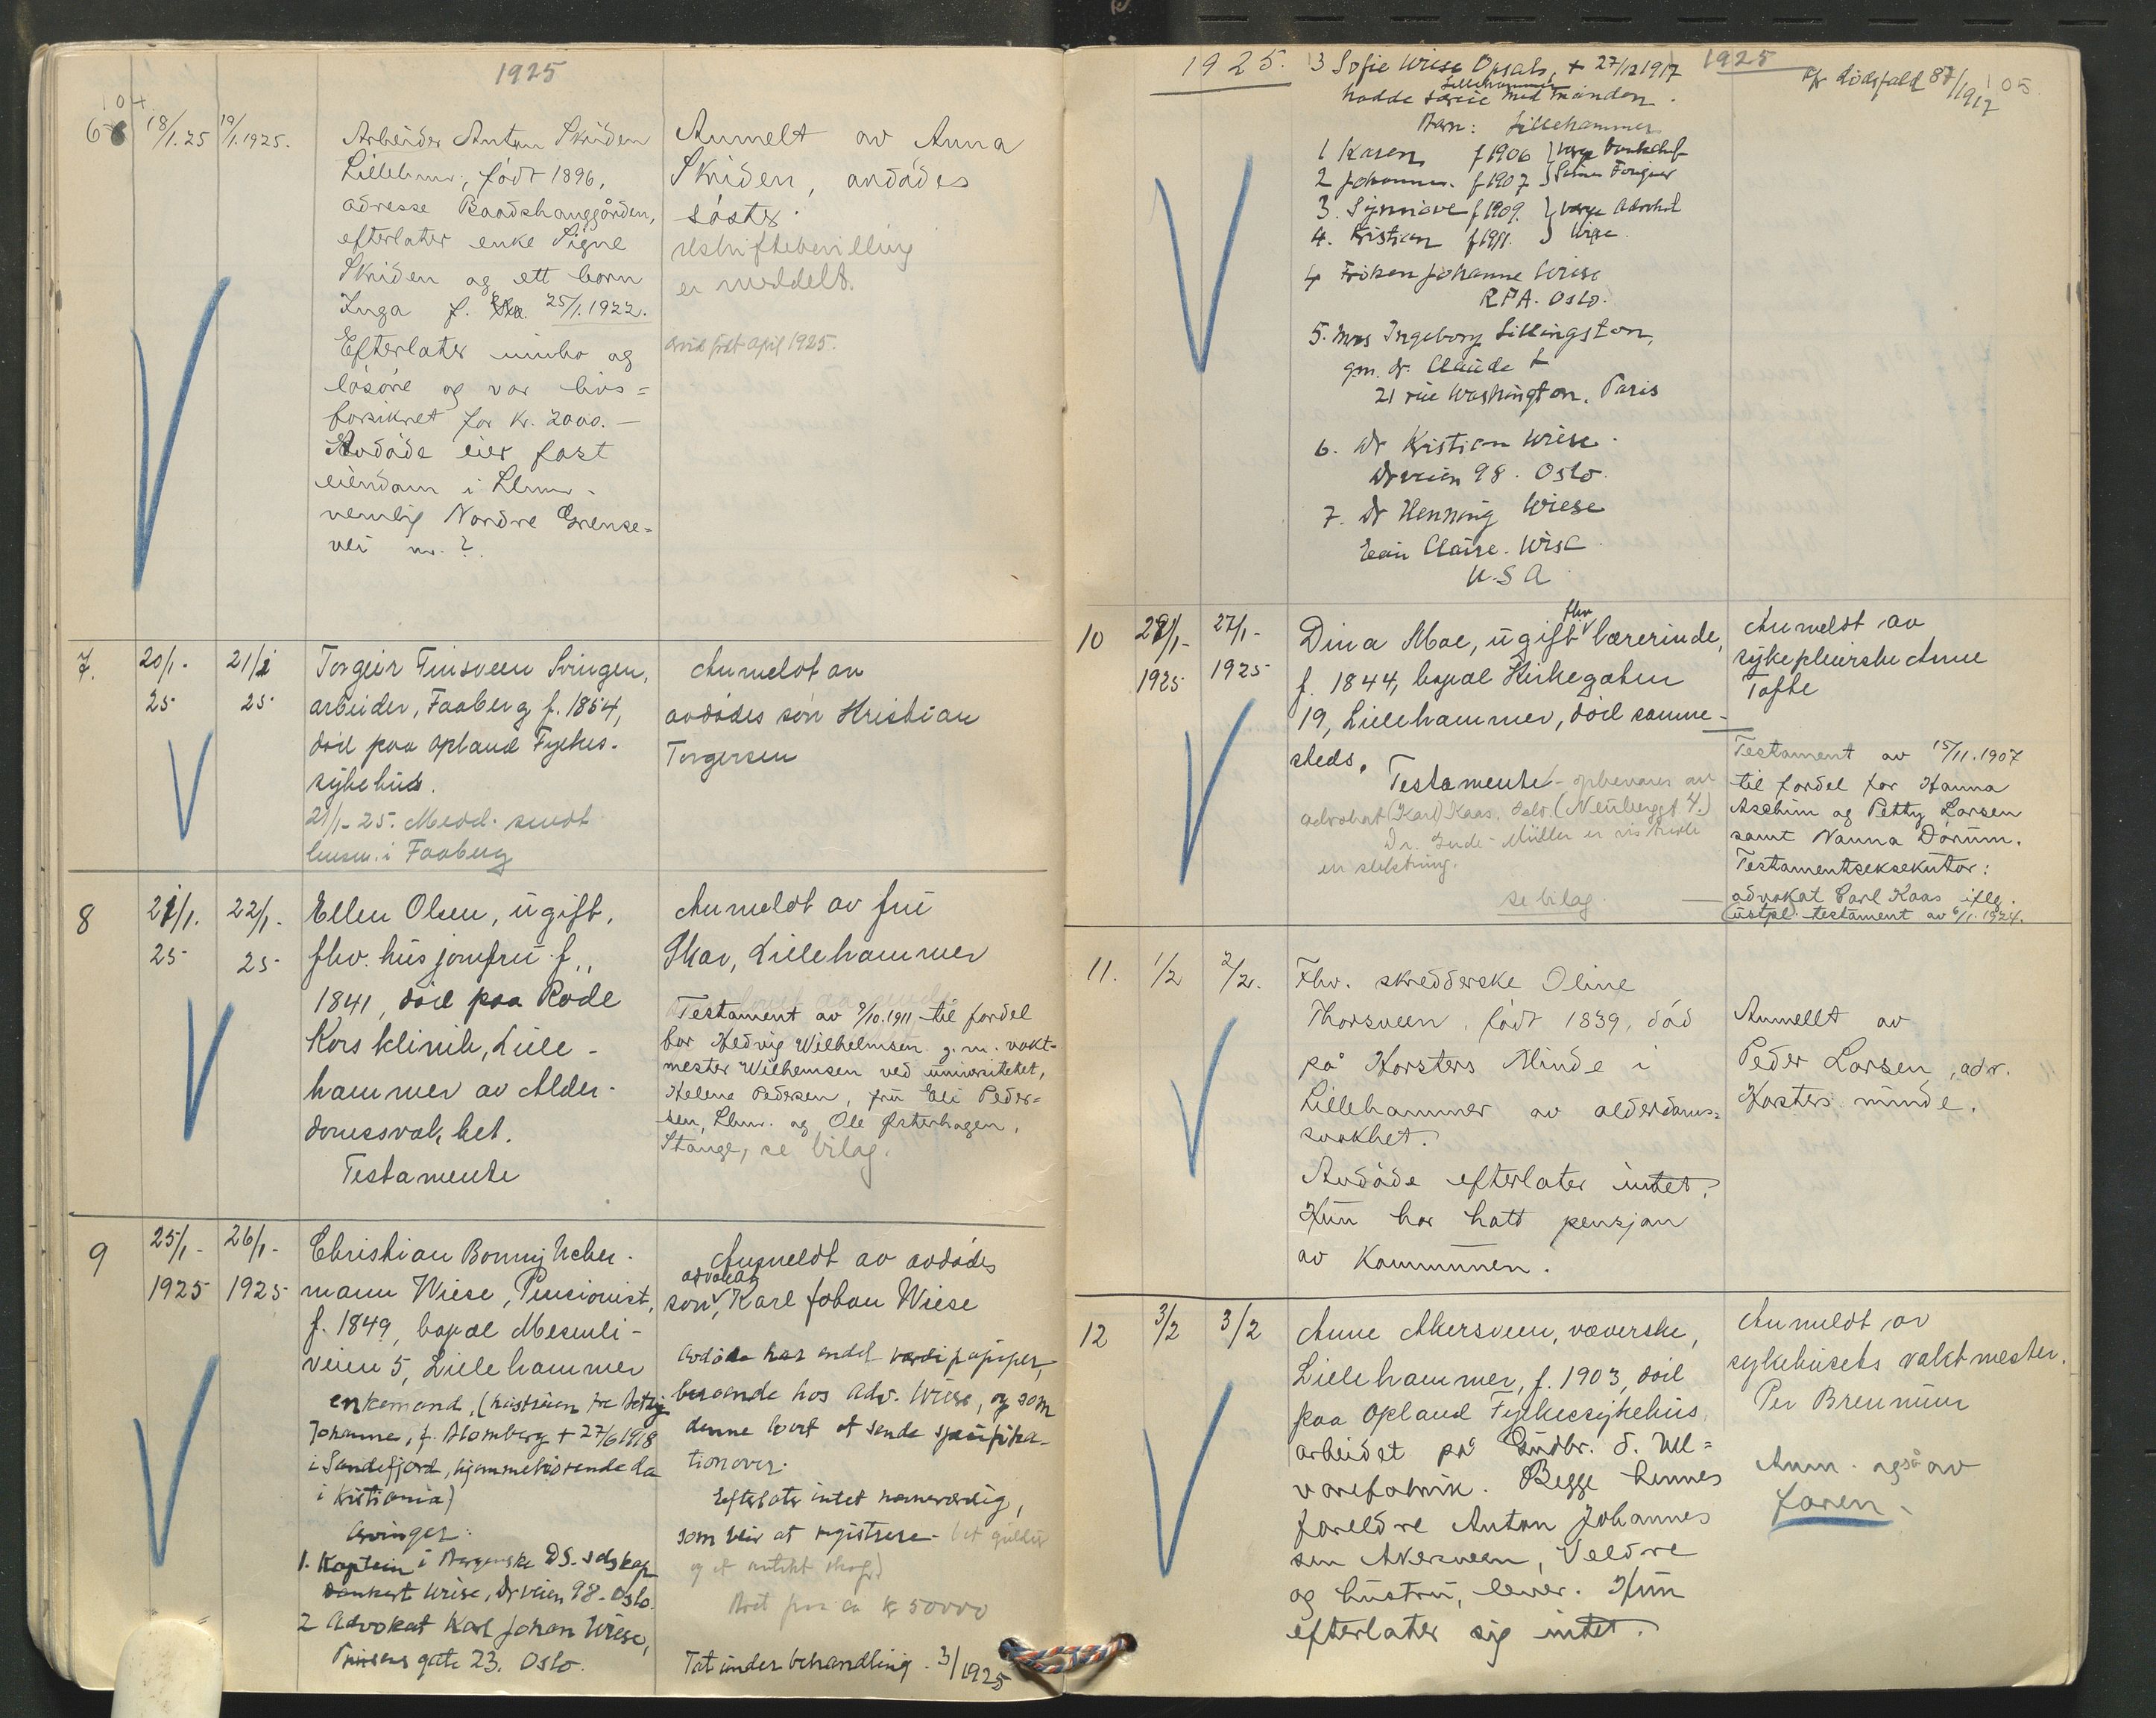 1925
104
6
18/1.25
19/1.1925.
Arbeider Anton Skriden
Lillehmr., født 1896,
adresse Baadshauggården,
efterlater enke Signe
Skriden og ett barn
Inga f. 25/1.1922.
Efterlater innbo og
løsøre og var livs=
forsikret for kr. 2000.—
Avdøde eier fast
eiendom i Lhmr.
nemlig Nordre Grense=
vei nr. ?
Anmelt av Anna
Skriden, avdødes
søster.
Uskiftebevilling
er meddelt.
april 1925.
7.
20/1.
25
21/1
25
Torgeir Finsveen Svingen,
arbeider, Faaberg f. 1854,
død paa Opland Fylkes-
sykehus.
21/1-25. Medd. sendt
lensm. i Faaberg
Anmeldt av
avdødes søn Kristian
Torgersen
8
21/1.
25
22/1.
25
Ellen Olsen, ugift,
fhv. husjomfru f.,
1841, død paa Røde
Kors klinik, Lille-
hammer av Alder-
domssvakhet.
Testamente
Anmeldt av fru
Skar, Lillehammer
Testament av 9/10.1911 til fordel
for Hedvig Wilhelmsen g.m. vakt-
mester Wilhemsen ved universitetet,
Helene Pedersen, fru Eli Peder=
sen, Lhmr. og Ole Østerhagen,
Stange, se bilag.
9
25/1-
1925
26/1-
1925
Christian Bonnij Ucher-
mann Wiese, Pensionist,
f. 1849, bopæl Mesenli-
veien 5, Lillehammer
enkemand, (hustruen
Johanne, f. Blomberg + 27/6 1918
i Sandefjord, hjemmehørende da
i Kristiania)
Arvinger:
1. Kaptein i Bergenske DS. selskap
Dankert Wiese, Drveien 98. Oslo.
2 Advokat Karl Johan Wiese,
Prinsens gate 23. Oslo.
Anmeldt av avdødes
advokat
søn, Karl Johan Wiese
Avdøde har endel værdipapirer,
beroende hos Adv. Wiese, og som
denne lovet at sende specifika-
tion over.
Efterlater intet nævneværdig,
som blir at registrere.
og et antikt skap)
Boet paa ca kr 50000
Tat under behandling. 3/1925
1925.
1925
105
3 Sofie Wiese Opsahl, + 27/12 1917
Lillehammer
hadde særeie med manden.
dødsfald 87/1917
Barn: Lillehammer
1 Karen f 1906
2 Johannes. f 1907
3. Synnøve f 1909. } verge Advokat
4. Kristian f 1911. } Wiese.
4 Frøken Johanne Wiese
R.P.A. Oslo.
5. Mrs Ingeborg Lillingston,
gm. dr. Claude L
21 rue Washington, Paris
6. Dr Kristian Wiese.
Drveien 98. Oslo.
7. Dr Henning Wiese
Eau Claire. Wisc.
U.S.A
10
27/1-
1925
27/1-
1925
fhv
Dina Moe, ugift lærerinde,
f. 1844, bopæl Kirkegaten
19, Lillehammer, død samme-
steds.
Testamente - opbevares av
advokat (Karl) Kaas, Oslo. (Neuberggt 4.)
Dr. Gude-Müller er
en slektning.
se bilag.
Anmeldt av
sykepleierske Anne
Tofte
Testament av 15/11.1907
til fordel for Hanna
Aschim og Petty Larsen
samt Nanna Dørum.
Testamentseksekutor:
advokat Carl Kaas iflg.
testament av 6/1.1924.
11.
1/2
2/2.
Fhv. skredderske Oline
Thorsveen, født 1839, død
på Korsters Minde i
Lillehammer av alderdoms=
svakhet.
Avdøde efterlater intet.
Hun har hatt pensjon
av Kommunen.
Anmeldt av
Peder Larsen, adr.
Korsters minde.
12
3/2
3/2
Anne Akersveen, væverske,
Lillehammer, f. 1903, død
paa Opland Fylkessykehus
arbeidet på Gudbr. d. Ull=
varefabrik. Begge hennes
foreldre Anton Johannes
sen Akersveen, Veldre
og hustru, lever. Hun
efterlater sig intet.
Anmeldt av
sykehusets vaktmester.
Per Brennum
Anm. også av
faren.